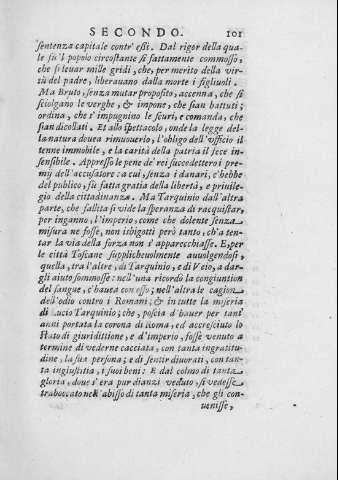 SECONDO. 101
sentenza capitale contr' essi. Dal rigor della qua-
le fù 'l popolo circostante sì fattamente commosso,
che si leuar mille gridi, che, per merito della vir-
tù del padre, liberauano dalla morte i figliuoli.
Ma Bruto, senza mutar proposito, accenna, che si
sciolgano le verghe, & impone, che sian battuti;
ordina, che s' impugnino le scuri, e comanda, che
sian dicollati. Et allo spettacolo, onde la legge del-
la natura douea rimuouerlo, l'obligo dell'vfficio il
tenne immobile, e la carità della patria il fece in-
sensibile. Appresso le pene de' rei succedettero i pre-
mij dell'accusatore: a cui, senza i danari, c'hebbe
del publico, fù fatta gratia della libertà, e priuile-
gio della cittadinanza. Ma Tarquinio dall'altra
parte, che fallita si vide la speranza di racquistar,
per inganno, l'imperio, come che dolente senza
misura ne fosse, non isbigottì però tanto, ch'a ten-
tar la via della forza non s' apparecchiasse. E, per
le città Toscane supplicheuolmente auuolgendosi,
quella, tra l'altre, di Tarquinio, e di Veio, a dar-
gli aiuto sommosse: nell'vna ricordò la congiuntion
del sangue, c'hauea con esso; nell'altra le cagion
dell'odio contro i Romani; & in tutte la miseria
di Lucio Tarquinio; che, poscia d'hauer per tant'
anni portata la corona di Roma, ed accresciuto lo
stato di giuridittione, e d'imperio, fosse venuto a
termine di vederne cacciata, con tanta ingratitu-
dine, la sua persona; e di sentir diuorati, con tan-
ta ingiustitia, i suoi beni: E dal colmo di tanta
gloria, doue s'era pur dianzi veduto, si vedesse
traboccato nell'abisso di tanta miseria, che gli con-
uenisse,